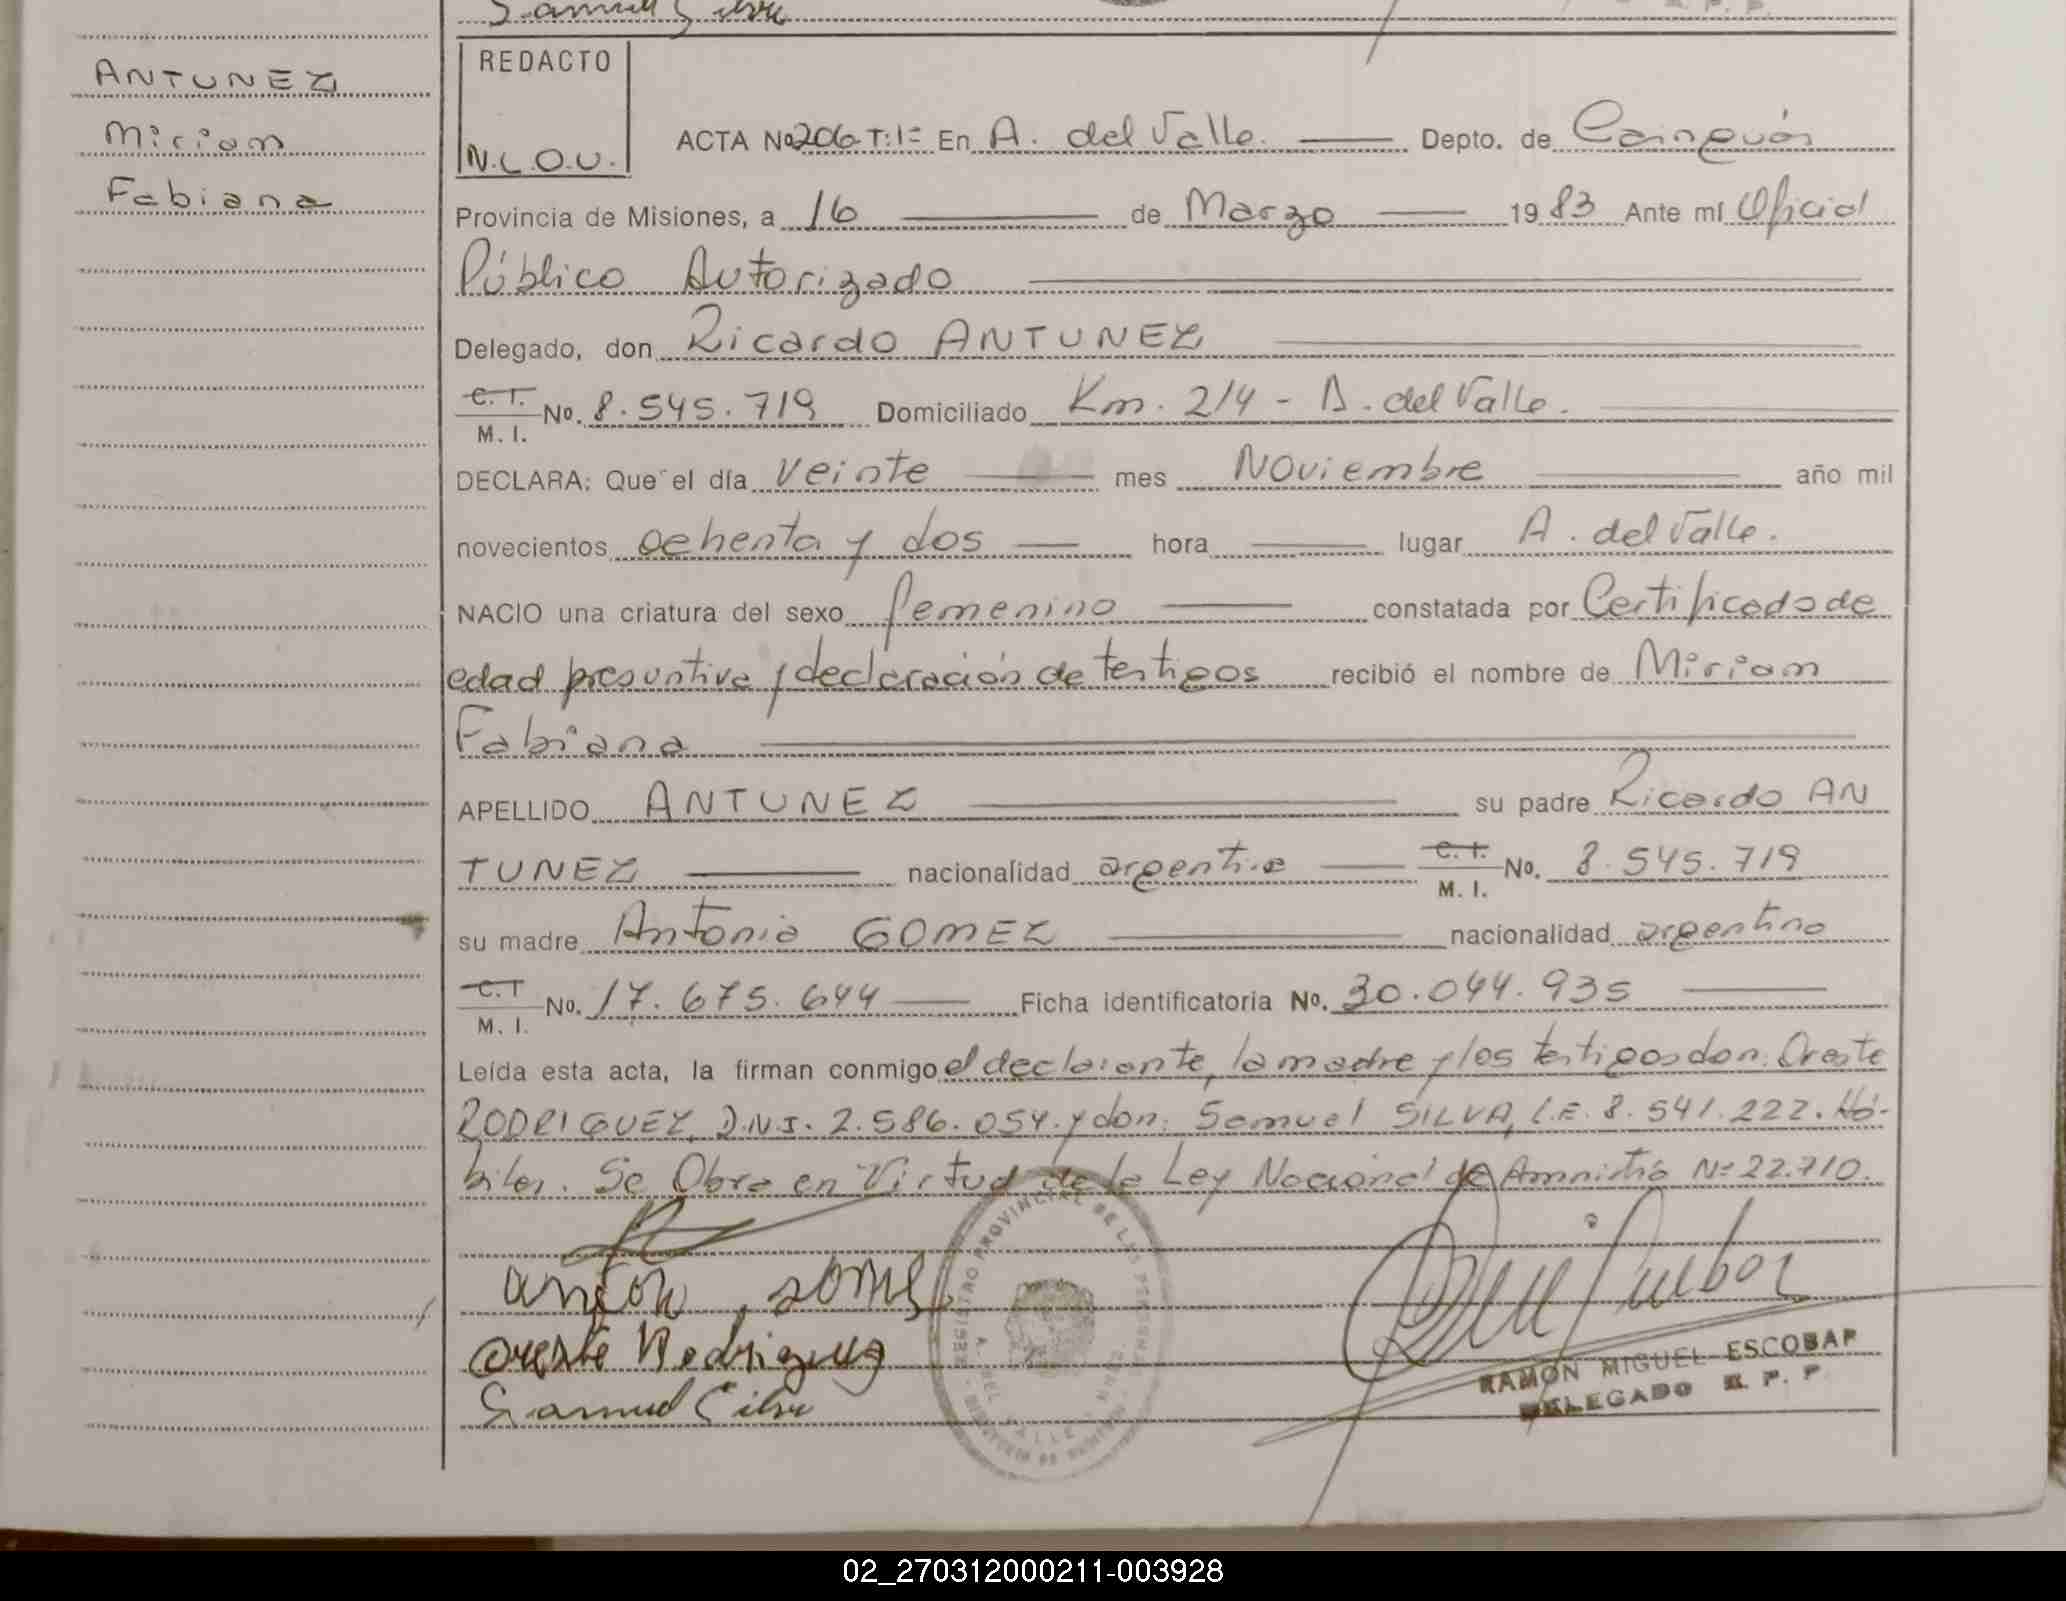 Samuel Silva
ANTUNEZ
Miriam
Fabiana
REDACTO
N.L.O.U.
ACTA Nº 206 T:1º En A. del Valle. Depto. de Cainguás
Provincia de Misiones, a 16 de Marzo 1983 Ante mí Oficial
Público Autorizado
Delegado, don Ricardo ANTUNEZ
C. I.
M. I. No. 8.545.719 Domiciliado Km. 214 - A. del Valle.
DECLARA: Que el día veinte mes Noviembre año mil
novecientos ochenta y dos hora lugar A. del Valle.
NACIO una criatura del sexo femenino constatada por Certificado de
edad presuntiva y declaración de testigos recibió el nombre de Miriam
Fabiana
APELLIDO ANTUNEZ su padre Ricardo AN
TUNEZ nacionalidad argentina C. I. M. I. No. 8.545.719
su madre Antonia GOMEZ nacionalidad argentina
C. I. M. I. No. 17.675.644 Ficha identificatoria No. 30.044.935
Leída esta acta, la firman conmigo el declarante, la madre y los testigos don: Oreste
RODRIGUEZ, D.N.I. 2.586.054. y don: Samuel SILVA, L.E. 8.541.222. Há-
biles. Se Obra en Virtud de la Ley Nacional de Amnistía Nº 22.710.
Oreste Rodriguez
Samuel Silva
REGISTRO PROVINCIAL DE LAS PERSONAS
A. DEL VALLE
RAMON MIGUEL ESCOBAR
DELEGADO R. P. P.
02_270312000211-003928